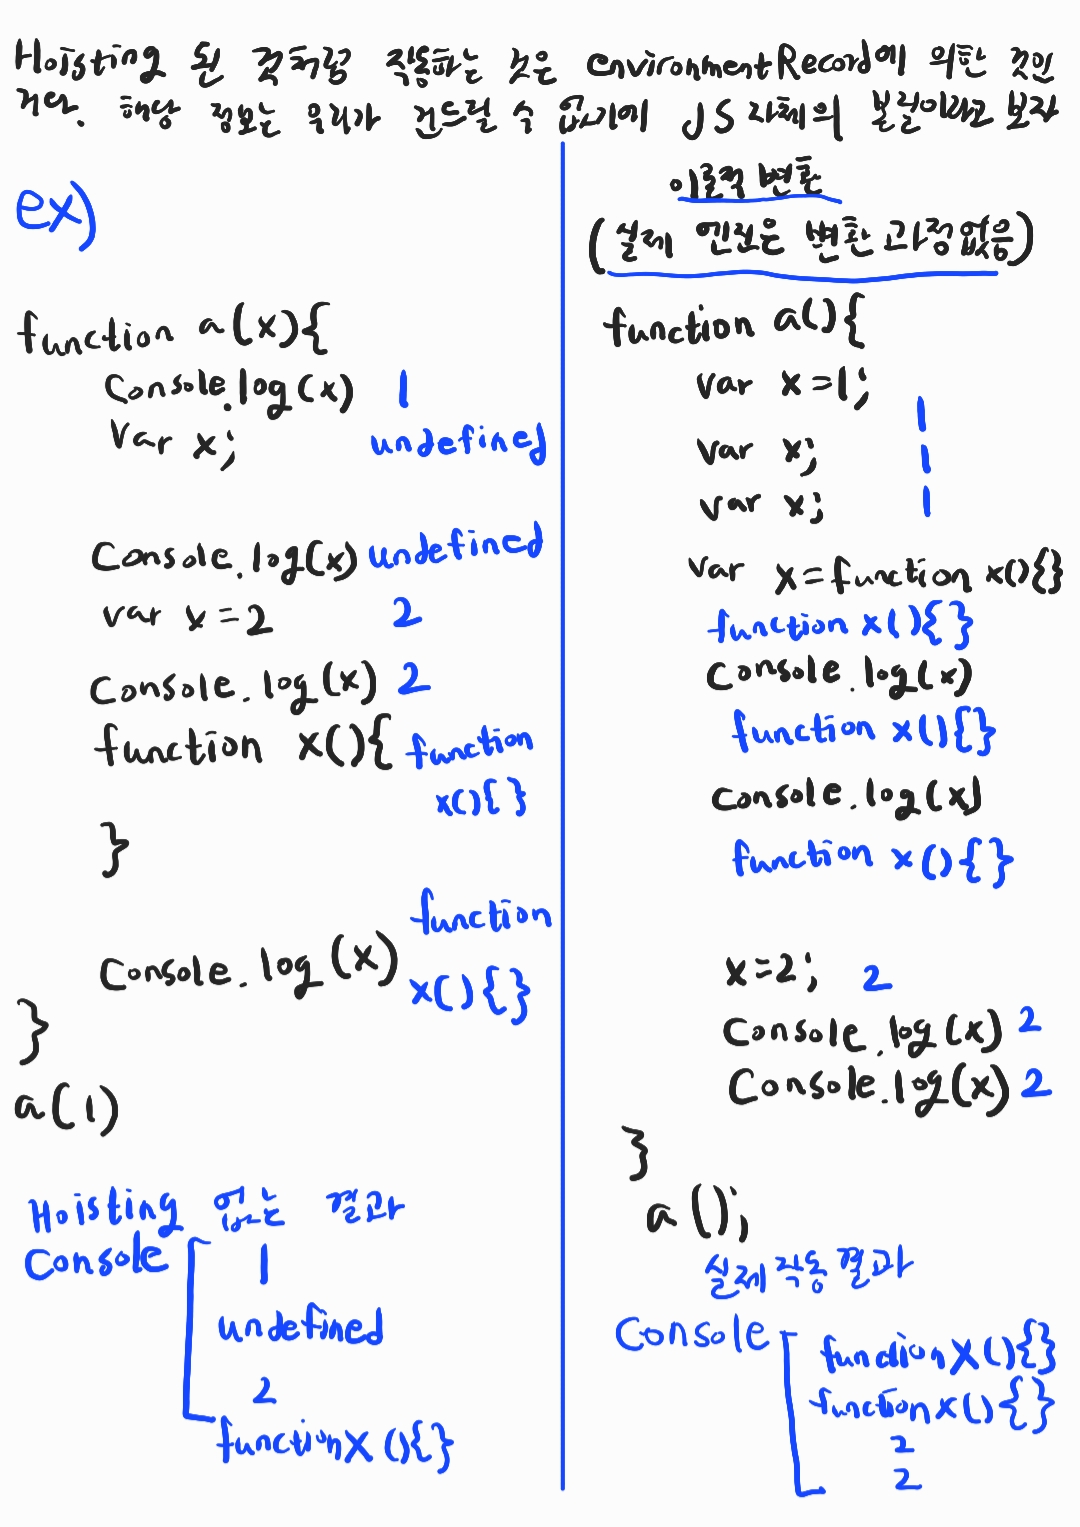 Hoisting 된 것처럼 작동하는 것은 environmentRecord에 의한 것인
거다. 해당 정보는 우리가 건드릴 수 없기에 JS 자체의 본질이라고 보자
ex)
function a(x){
Console.log(x) 1
Var x; undefined
Console.log(x) undefined
var x = 2 2
Console.log(x) 2
function x(){ function
x(){}
}
function
Console.log(x) x(){}
}
a(1)
Hoisting 없는 결과
Console
1
undefined
2
function X(){}
이론적 변환
(실제 엔진은 변환 과정없음)
function a(){
var x=1; 1
var x; 1
var x; 1
var x=function x(){}
function x(){}
Console.log(x)
function x(){}
Console.log(x)
function x(){}
x=2; 2
Console.log(x) 2
Console.log(x) 2
}
a();
실제 작동 결과
Console
function X(){}
function x(){}
2
2